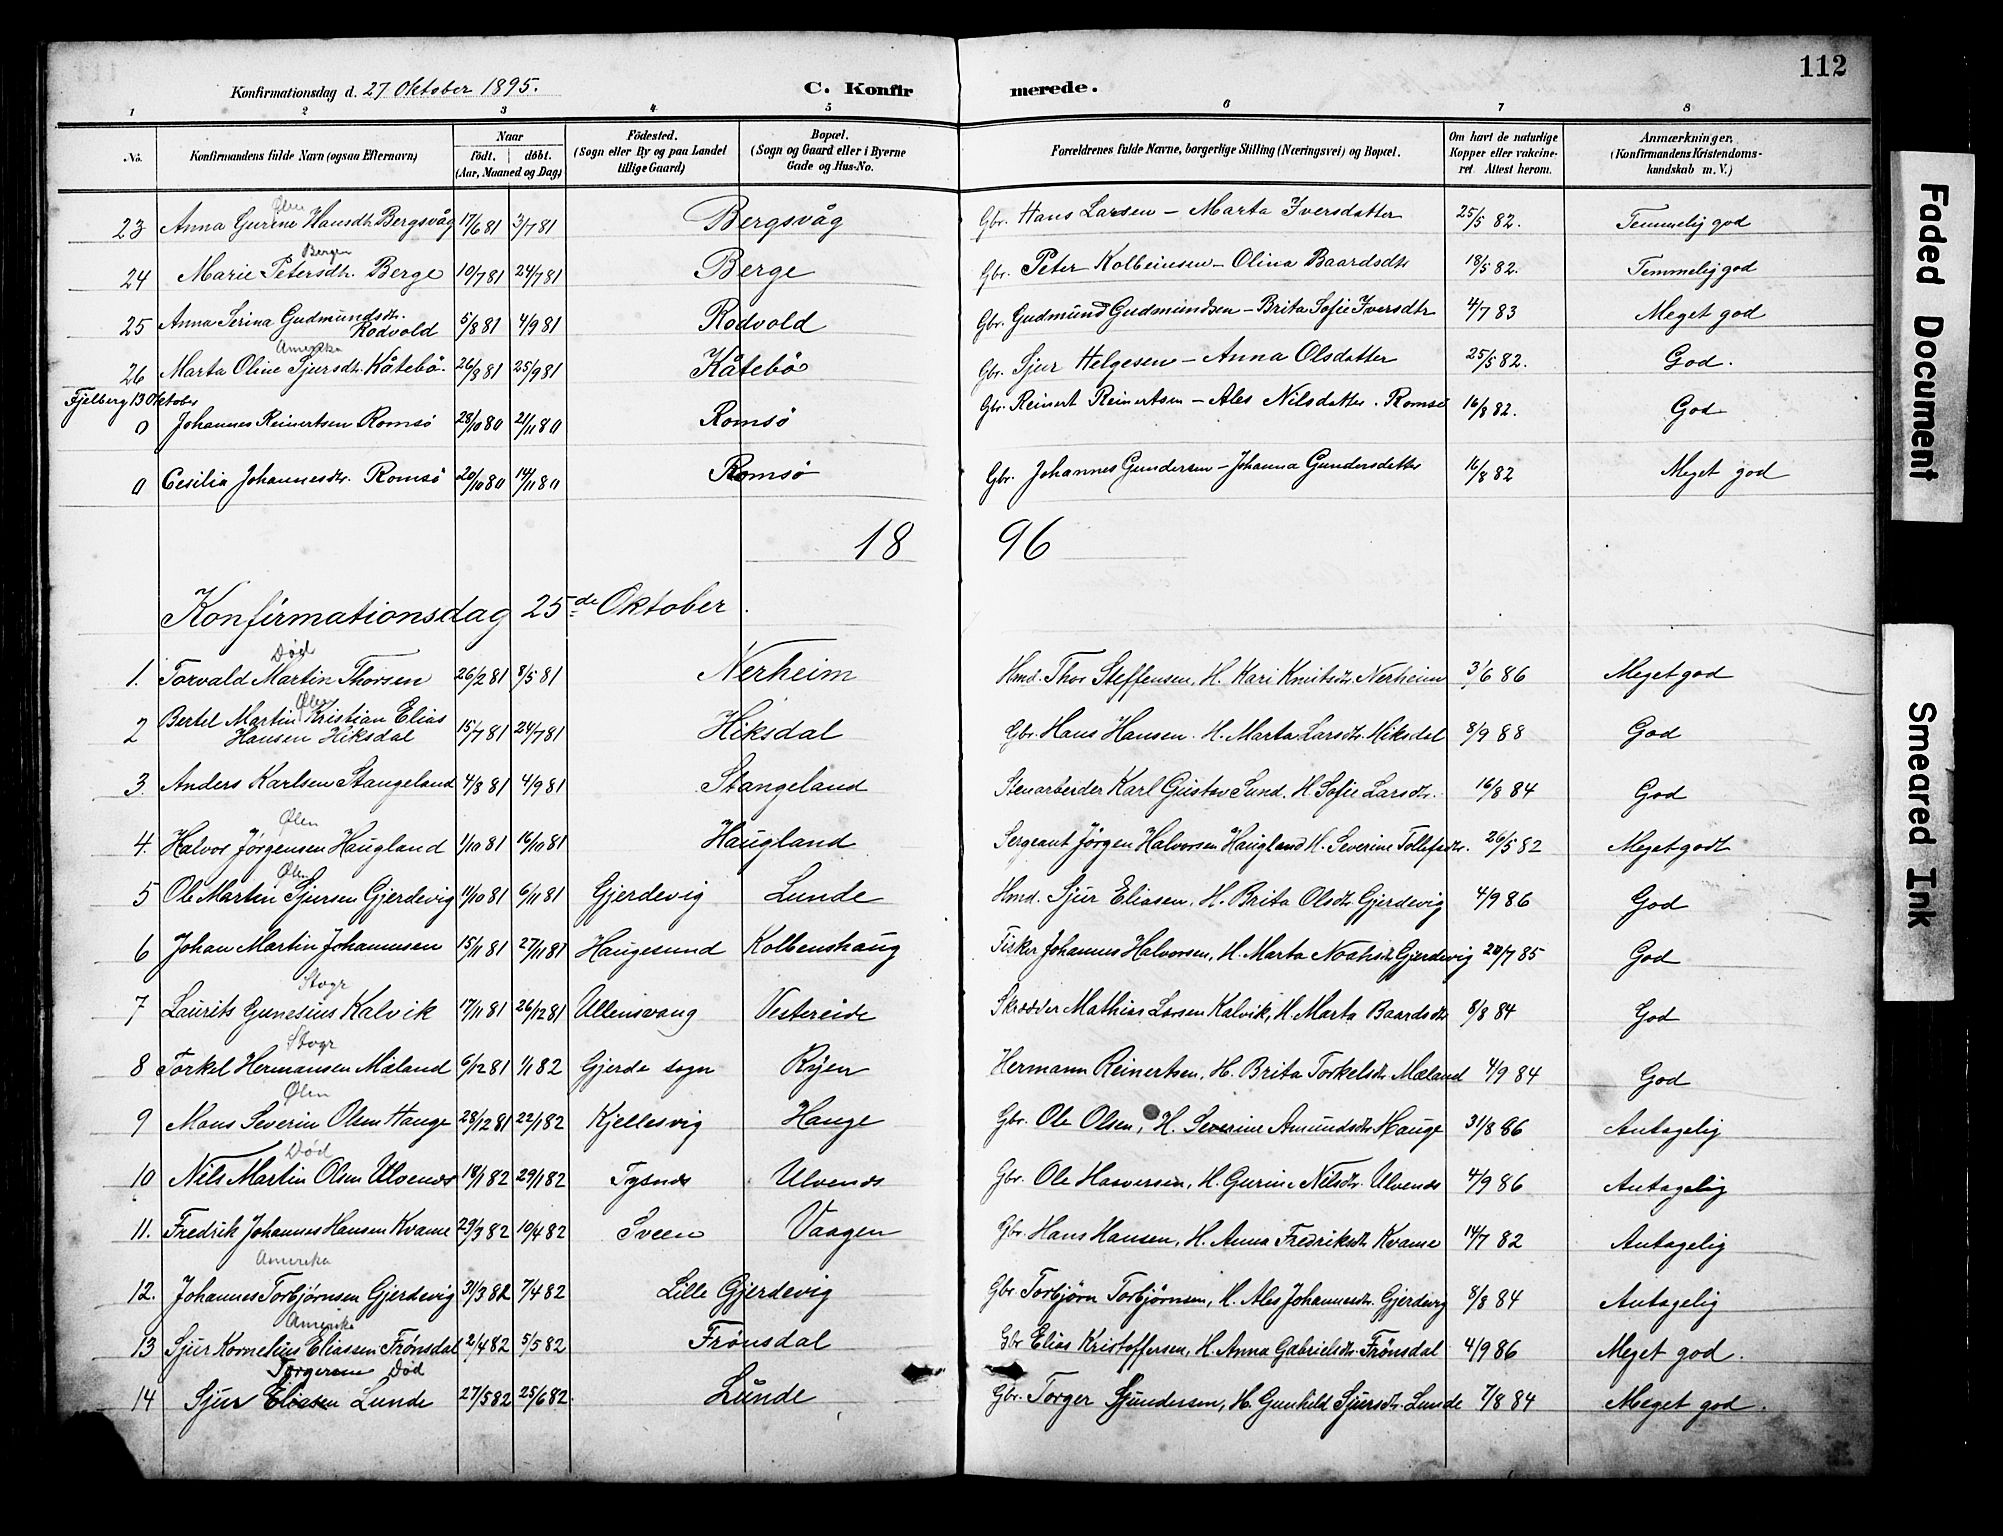 112
Konfirmationsdag d. 27 Oktober 1895. C. Konfirmerede.
1 2 3 4 5 6 7 8
No. Konfirmandens fulde Navn (ogsaa Efternavn) Naar født. døbt. (Aar, Maaned og Dag) Fødested. (Sogn eller By og paa Landet tillige Gaard) Bopæl. (Sogn og Gaard eller i Byerne Gade og Hus-No. Forældrenes fulde Navne, borgerlige Stilling (Næringsvei) og Bopæl. Om havt de naturlige Kopper eller vakcineret. Attest herom. Anmærkninger, (Konfirmandens Kristendomskundskab m. V.)
Ølen
23 Anna Gurine Hansdtr Bergsvåg 17/6 81 3/7 81 Bergsvåg Gbr. Hans Larsen – Marta Iversdatter 25/5 82. Temmelig god
Bergen
24 Marie Petersdtr. Berge 10/7 81 24/7 81 Berge Gbr. Peter Kolbeinsen – Olina Baardsdtr 18/5 82. Temmelig god
25 Anna Serina Gudmundsdtr. Rodvold 5/8 81 4/9 81 Rodvold Gbr. Gudmund Gudmundsen – Brita Sofie Iversdtr 4/7 83 Meget god
Amerika
26 Marta Oline Sjursdtr. Kåtebø. 26/8 81 25/9 81 Kåtebø Gbr. Sjur Helgesen – Anna Olsdatter 25/5 82. God.
Fjelberg 13 Oktober
0 Johannes Reinertsen Romsø 28/10 80 21/11 80 Romsø Gbr. Reinert Reinertsen – Ales Nilsdatter. Romsø 16/8 82. God
0 Cesilia Johannesdtr. Romsø 20/10 80 14/11 80 Romsø Gbr. Johannes Gundersen – Johanna Gundersdatter 16/8 82 Meget god
18 96
Konfirmationsdag 25de Oktober.
Død
1. Torvald Martin Thorsen 26/2 81 8/5 81 Nerheim Hmd. Thor Steffensen, H. Kari Knutsdtr. Nerheim 3/6 86 Meget god
Ølen
2 Bertel Martin Kristian Elias Hansen Hiksdal 15/7 81 24/7 81 Hiksdal Gbr. Hans Hansen. H. Marta Larsdtr. Hiksdal 8/9 88 God
3. Anders Karlsen Stangeland 4/8 81 4/9 81 Stangeland Stenarbeider Karl Gustav Sund. H. Sofie Larsdtr. 16/8 84 God
Ølen
4. Halvor Jørgensen Haugland 1/10 81 16/10 81 Haugland Sergeant Jørgen Halvorsen Haugland H. Severine Tollefsdtr. 26/5 82 Meget godt
Ølen
5 Ole Martin Sjursen Gjerdevig 11/10 81 6/11 81 Gjerdevig Lunde Hmd. Sjur Eliasen, H. Brita Olsdtr Gjerdevig 4/9 86 God
6 Johan Martin Johannesen 15/11 81 27/11 81 Haugesund Kolbenshaug Fisker Johannes Halvorsen, H. Marta Noahsdtr Gjerdevig 20/7 85 God
Stogr
7 Laurits Gunelius Kalvik 17/11 81 26/12 81 Ullensvang Vestereide Skrædder Mathias Larsen Kalvik, H. Marta Baardsdtr 8/8 84 God
Stogr
8 Torkel Hermansen Mæland 6/12 81 1/1 82 Gjerde sogn Rýen Hermann Reinertsen, H. Brita Torkelsdtr. Mæland 4/9 84 God
Ølen
9 Mons Severin Olsen Hauge 28/12 81 22/1 82 Kjellesvig Hauge Gbr. Ole Olsen, H. Severine Amundsdtr. Hauge 31/8 86 Antagelig
Død
10 Nils Martin Olsen Ulvenes 18/1 82 29/1 82 Tysnes Ulvenes Gbr. Ole Haaversen, H. Gurine Nilsdtr. Ulvenes 4/9 86 Antagelig
11. Fredrik Johannes Hansen Kvame 29/3 82 10/4 82 Sveen Vaagen Gbr. Hans Hansen, H. Anna Fredriksdtr Kvame 14/7 82 Antagelig
Amerika
12. Johannes Torbjørnsen Gjerdevig 31/3 82 7/4 82 Lille Gjerdevig Gbr Torbjørn Torbjørnsen, H. Ales Johannesdtr. Gjerdevig 8/8 84 Antagelig
Amerika
13 Sjur Kornelius Eliassen Frønsdal 2/4 82 5/5 82 Frønsdal Gbr Elias Kristoffersen, H. Anna Gabrielsdtr. Frønsdal 4/9 86 Meget god.
Torgersen Død
14 Sjur Eliasen Lunde 27/5 82 25/6 82. Lunde Gbr. Torger Sjundersen, H. Gunhild Sjursdtr. Lunde 7/8 84 Meget god.
Faded Document
Smeared Ink